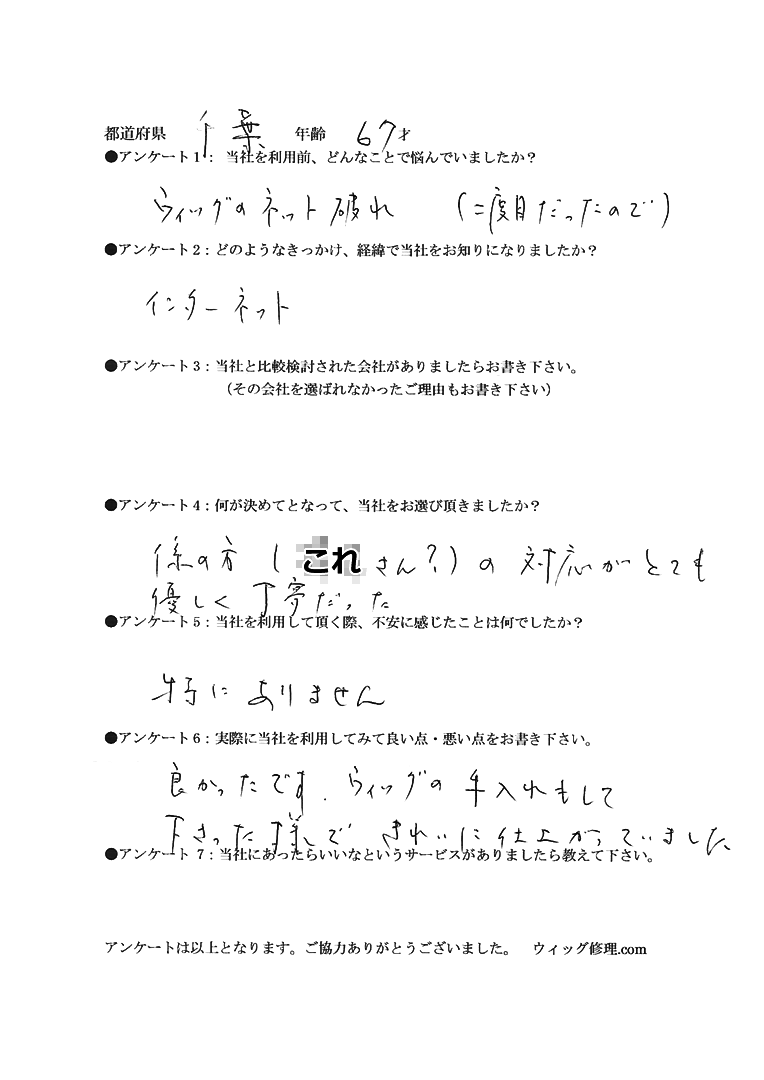 都道府県 千葉 年齢 67才
●アンケート1： 当社を利用前、どんなことで悩んでいましたか？
ウィッグのネット破れ (二度目だったので)
●アンケート2：どのようなきっかけ、経緯で当社をお知りになりましたか？
インターネット
●アンケート3：当社と比較検討された会社がありましたらお書き下さい。
（その会社を選ばれなかったご理由もお書き下さい）
●アンケート4：何が決めてとなって、当社をお選び頂きましたか？
係の方 ( これ さん?) の 対応がとても
優しく丁寧だった
●アンケート5：当社を利用して頂く際、不安に感じたことは何でしたか？
特に ありません
●アンケート6：実際に当社を利用してみて良い点・悪い点をお書き下さい。
良かったです. ウィッグの 手入れもして
下さった様で きれいに仕上がっていました
●アンケート 7：当社にあったらいいなというサービスがありましたら教えて下さい。
アンケートは以上となります。ご協力ありがとうございました。 ウィッグ修理.com